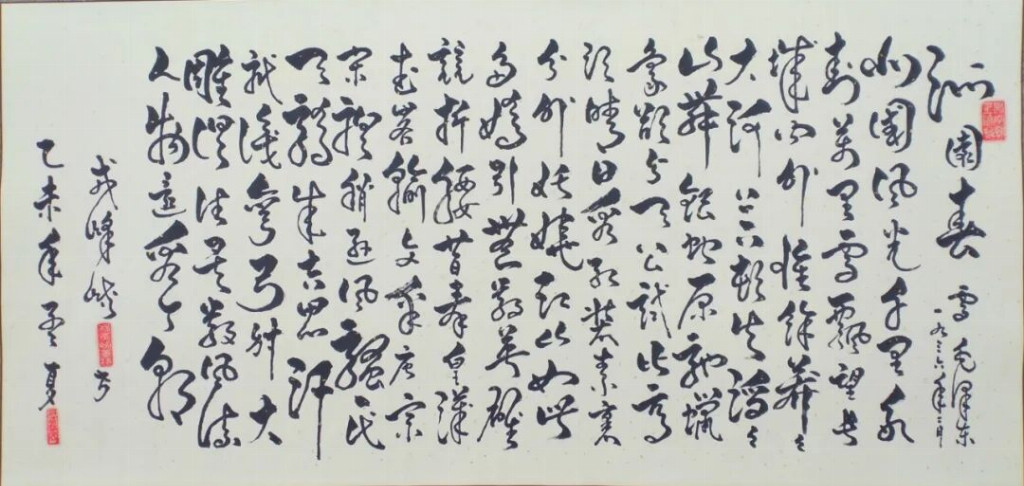 沁園春 雪 毛澤東
一九三六年二月
北國风光千里冰
封萬里雪飄望長
城内外惟餘莽々
大河上下頓失滔々
山舞銀蛇原馳蠟
象欲与天公試比高
須晴日看紅裝素裹
分外妖嬈江山如此
多嬌引無數英雄
競折腰昔秦皇漢
武略輸文采唐宗
宋祖稍逊风騷一代
天驕成吉思汗
只識彎弓射大
雕俱往矣數风流
人物還看今朝
峰 书
乙未年孟夏